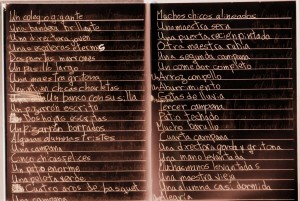 Un colegio gigante
Una bandera brillante
Una directora gorda
Unas escaleras eternas
Dos puertas marrones
Un pasillo largo
Una maestra gritona
Veintiún chicos charletas
Un banco con su silla
Dos hojas escritas
Un pizarrón borrados
Algunos alumnos tristes
Una campana
Cinco chicos felices
Un patio enorme
Una pelota verde
Cuatro aros de basquet
Una campana
Muchos chicos alineados
Una maestra seria
Una puerta recién pintada
Otra maestra rubia
Una segunda campana
Un comedor completo
Arroz con pollo
Aburrimiento
Gotas de lluvia
Tercer campana
Patio techado
Mucho barullo
Cuarta campana
Una directora gorda y gritona
Una mano levantada
Muchas manos levantadas
Una maestra vieja
Una alumna casi dormida
Alegría